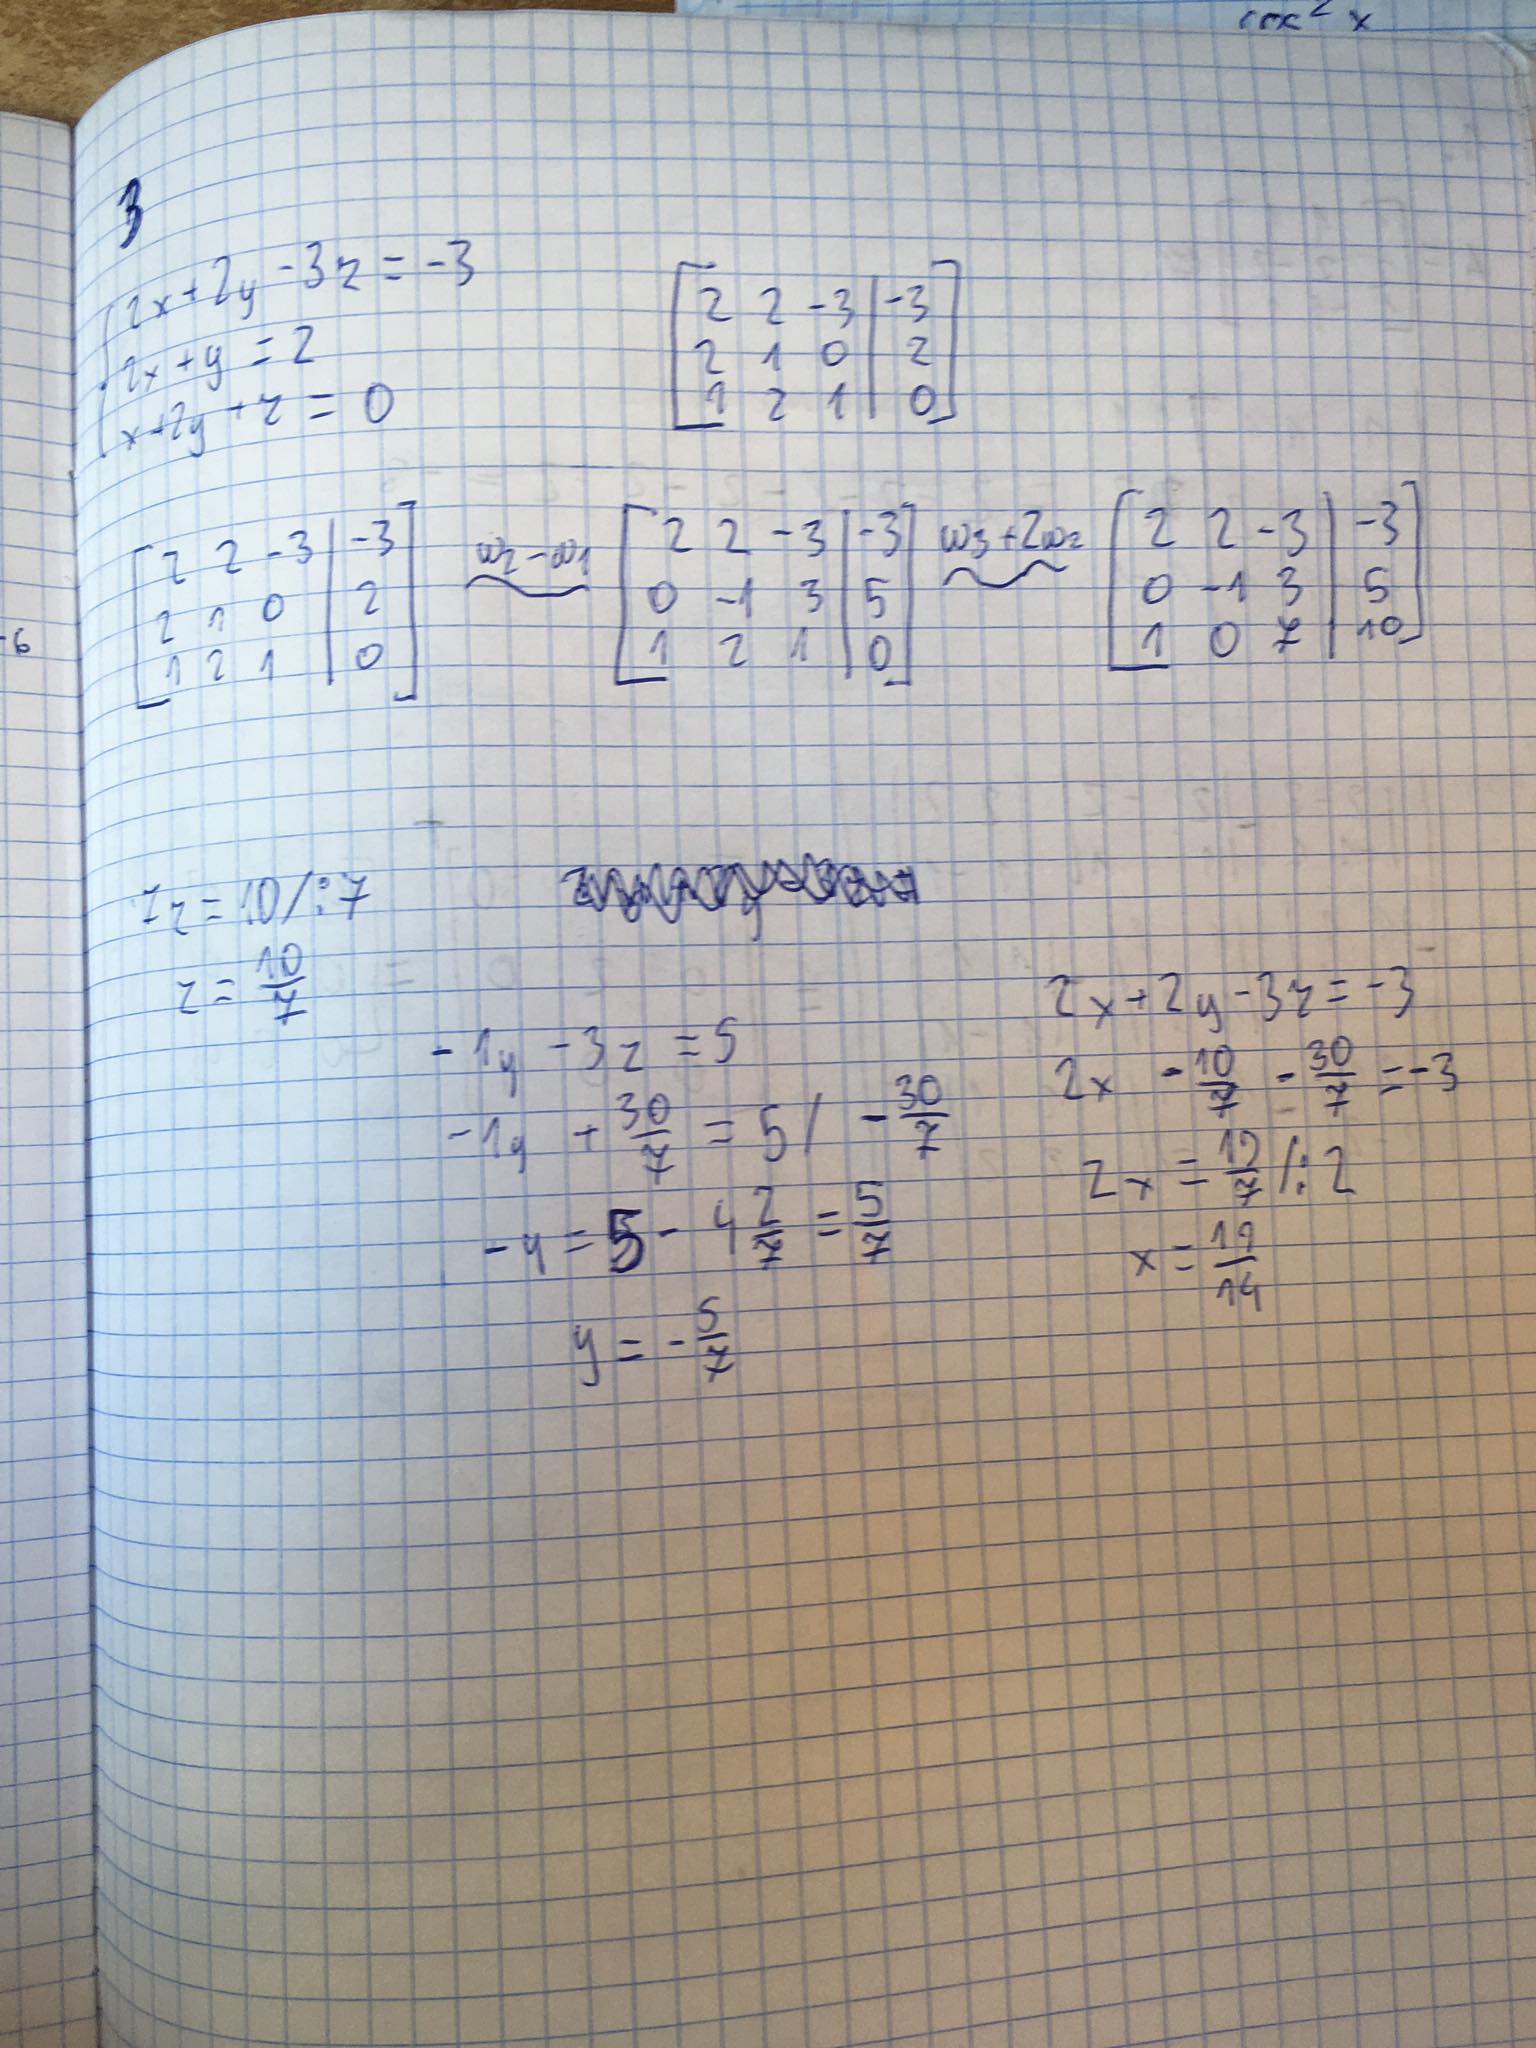 cos² x
3
2x + 2y - 3z = -3
2x + y = 2
x + 2y + z = 0
[ 2 2 -3 | -3 ]
[ 2 1 0 | 2 ]
[ 1 2 1 | 0 ]
[ 2 2 -3 | -3 ] w2 - w1 [ 2 2 -3 | -3 ] w3 + 2w2 [ 2 2 -3 | -3 ]
[ 2 1 0 | 2 ] [ 0 -1 3 | 5 ] [ 0 -1 3 | 5 ]
[ 1 2 1 | 0 ] [ 1 2 1 | 0 ] [ 1 0 7 | 10 ]
-6
7z = 10 /:7
z = 10/7
-1y - 3z = 5
-1y + 30/7 = 5 / - 30/7
-y = 5 - 4 2/7 = 5/7
y = - 5/7
2x + 2y - 3z = -3
2x - 10/7 - 30/7 = -3
2x = 19/7 /:2
x = 19/14